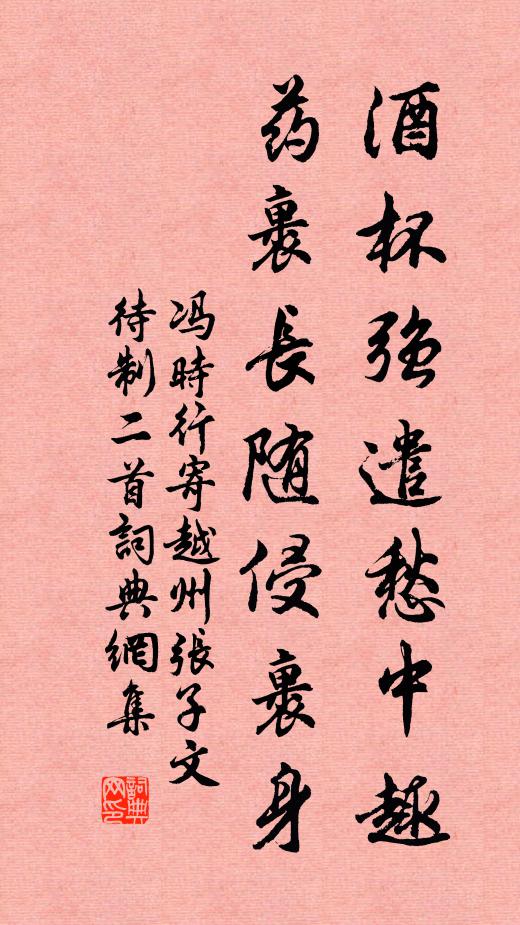 酒杯強遣愁中趣
药裹長随侵裹身
冯時行寄越州張子文
待制二首詞典網集
詞典
网印